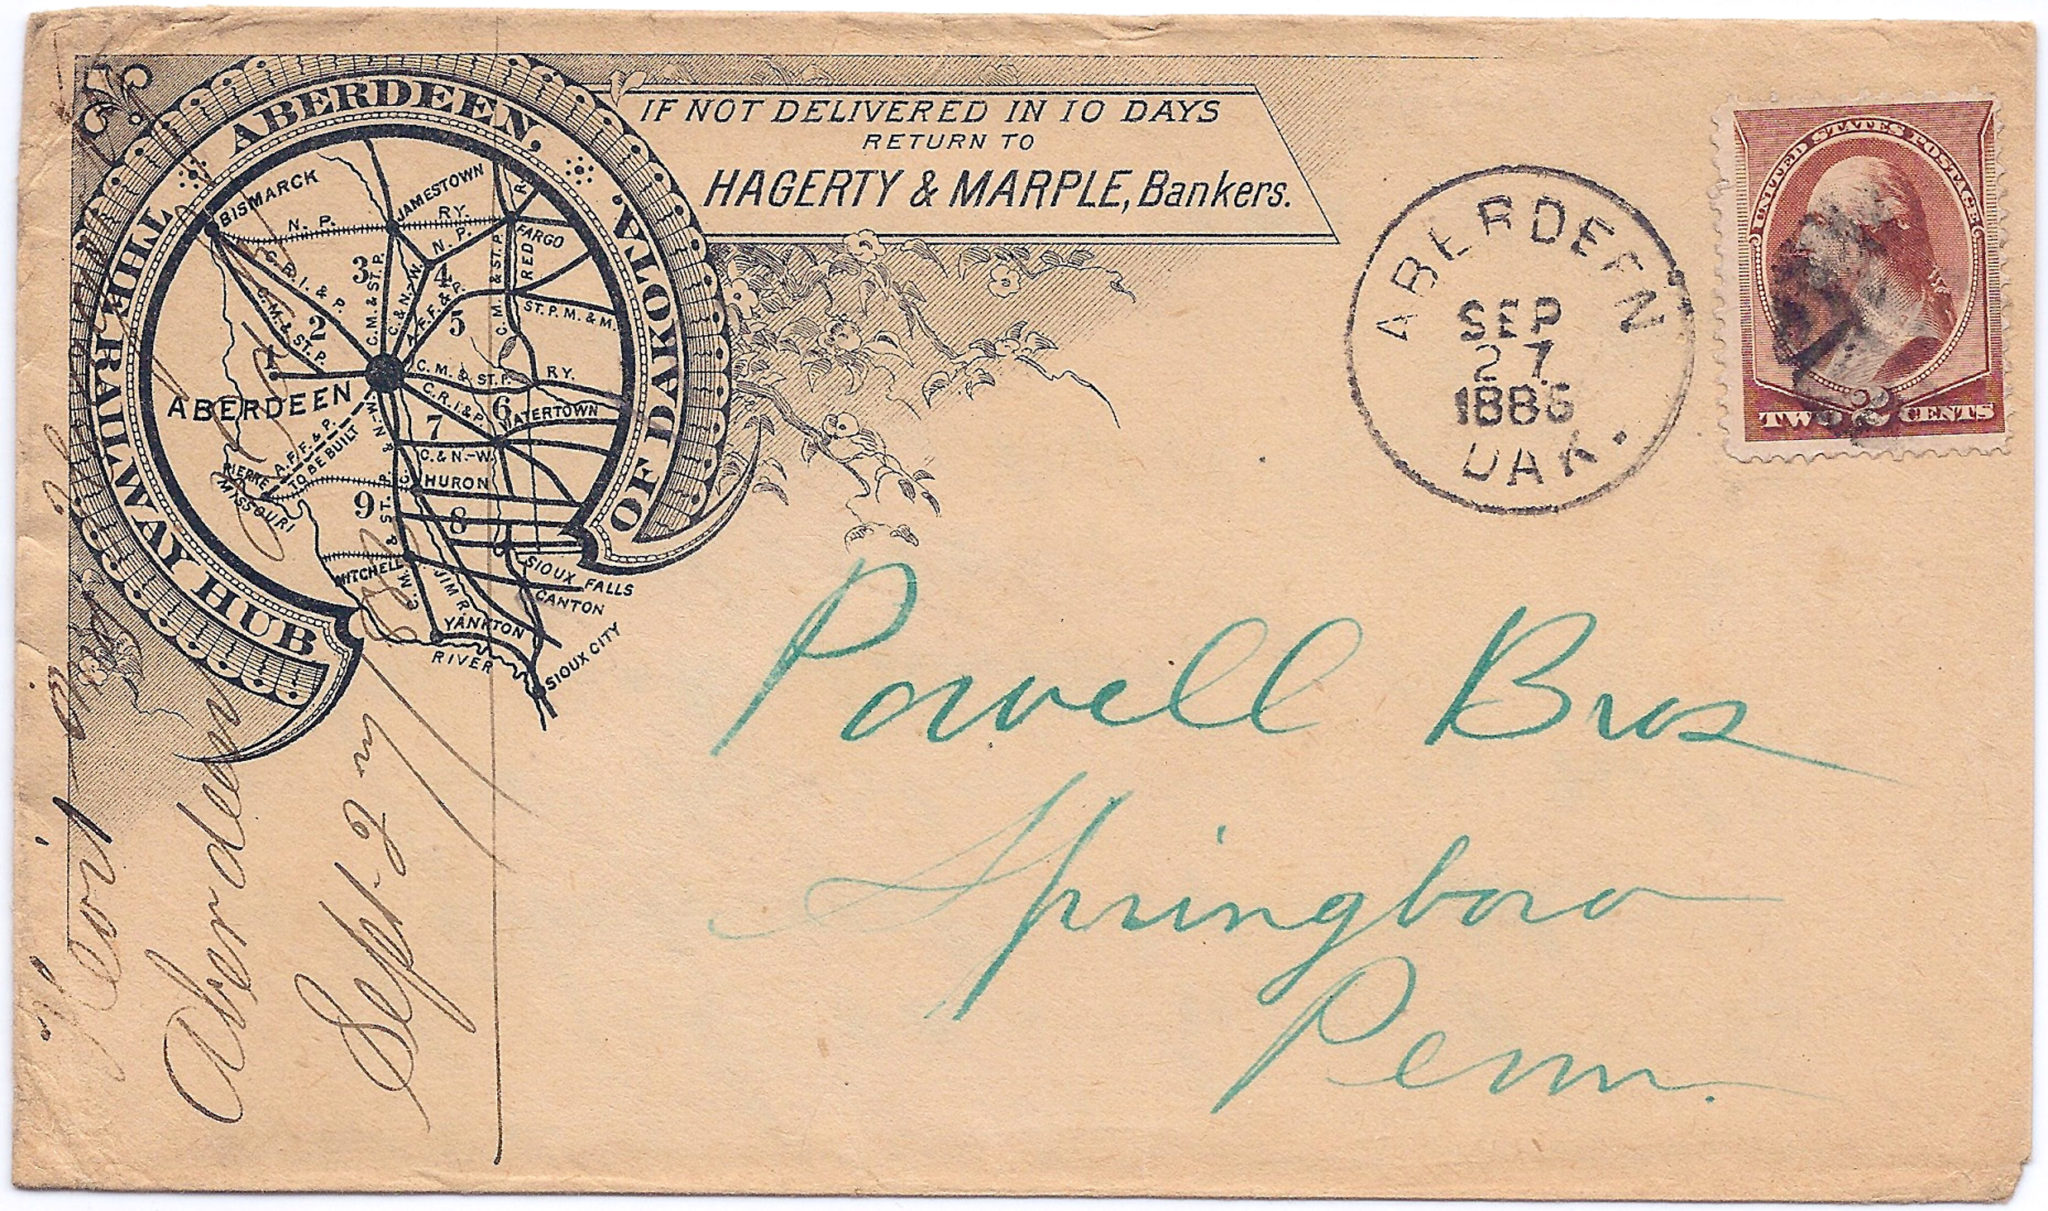 ABERDEEN, THE RAILWAY HUB OF DAKOTA.
IF NOT DELIVERED IN 10 DAYS
RETURN TO
HAGERTY & MARPLE, Bankers.
BISMARCK
N. P. RY.
JAMESTOWN
N. P.
R. R.
FARGO
RED
C. R. I. & P.
C. M. & ST. P.
2
3
C. M. & ST. P.
C. & N.-W.
4
A. F. F. & P.
5
C. M. & ST. P.
ST. P. M. & M.
1
ABERDEEN
C. M. & ST. P. RY.
C. R. I. & P.
6
WATERTOWN
7
C. & N.-W.
HURON
PIERRE
A. F. F. & P.
TO BE BUILT
MISSOURI
9
C. M. & ST. P.
8
MITCHELL
JIM R.
SIOUX FALLS
CANTON
YANKTON
RIVER
SIOUX CITY
ABERDEEN
SEP
27
1886
DAK.
UNITED STATES POSTAGE
TWO 2 CENTS
Powell Bros
Springboro
Penn.
Aberdeen
Sept. 27